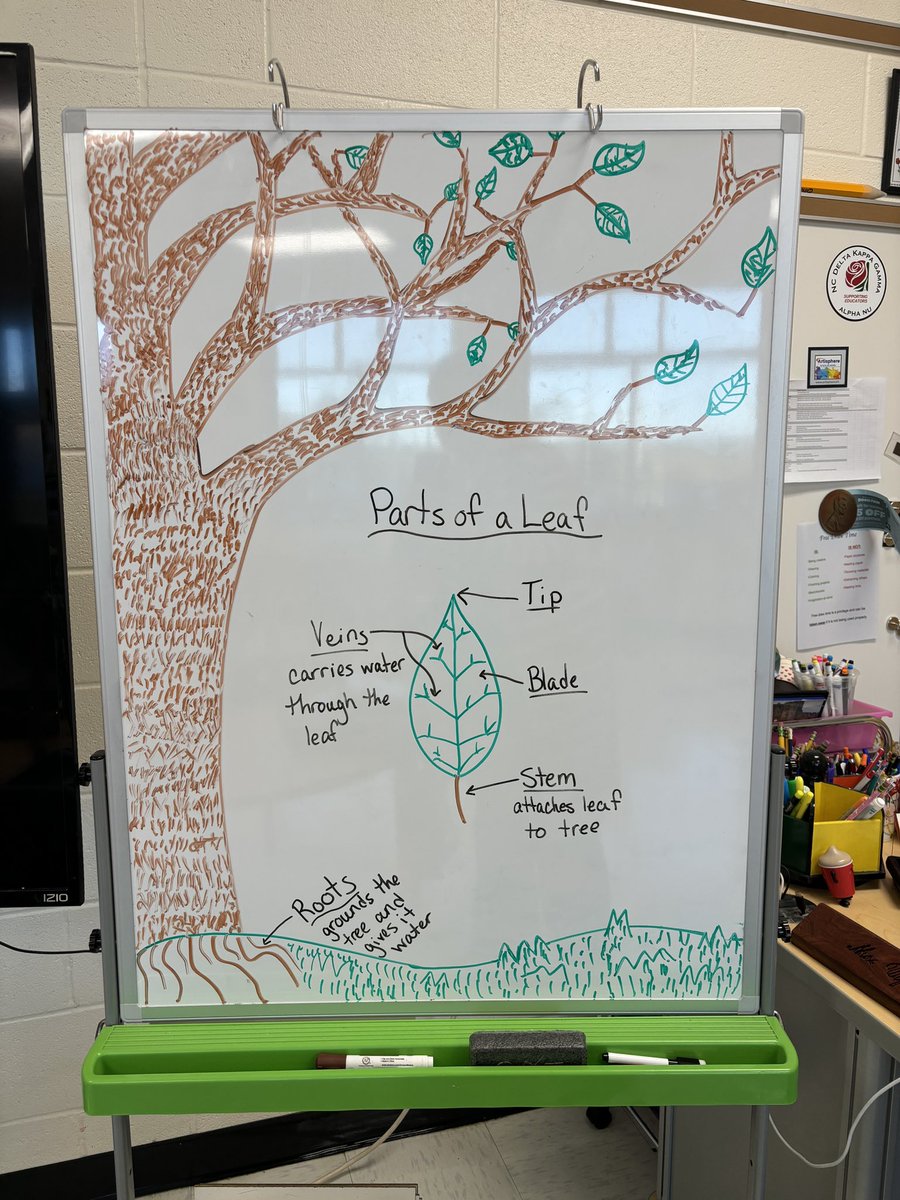 Parts of a Leaf
Tip
Veins
carries water
through the
leaf
Blade
Stem
attaches leaf
to tree
Roots
grounds the
tree and
gives it
water
NC DELTA KAPPA GAMMA
SUPPORTING
EDUCATORS
ALPHA NU
Artisphere
IZIO